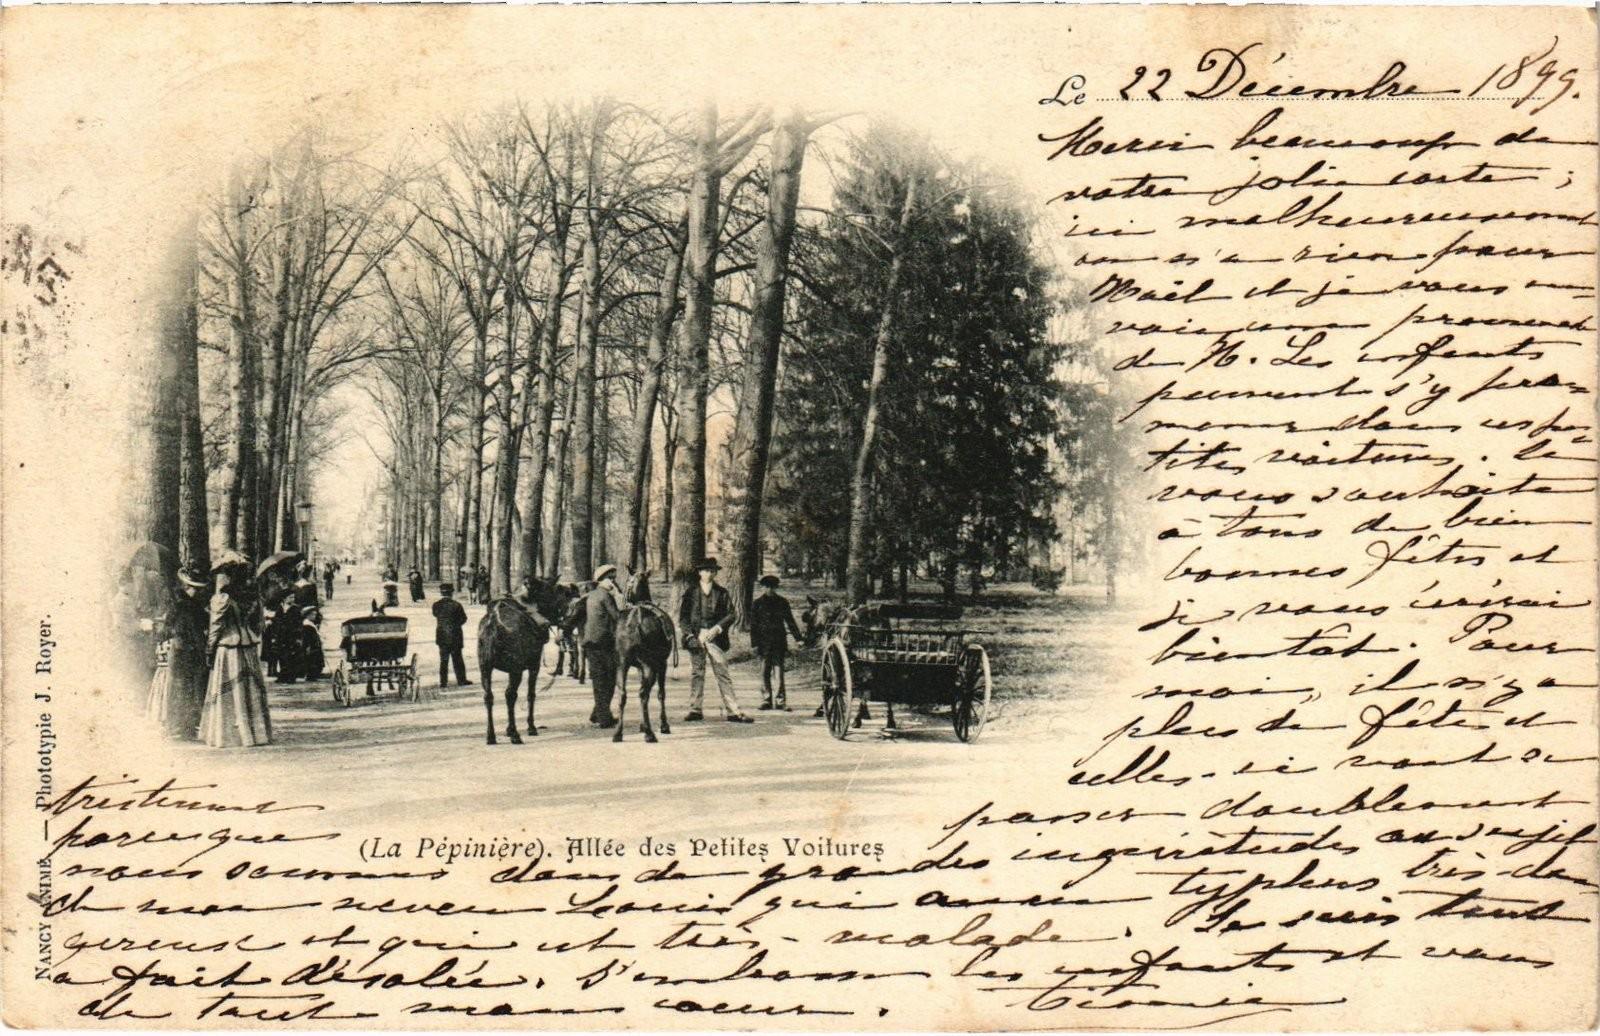 Le 22 Décembre 1899.
Merci beaucoup de
votre jolie carte ;
ici malheureusement
on n'a rien pour
Noël et je vous en-
voie une promenade
de N. Les enfants
peuvent s'y pro-
mener dans ces pe-
tites voitures. Je
vous souhaite
à tous de bien
bonnes fêtes et
je vous écrirai
bientôt. Pour
moi, il n'y a
plus de fête et
celles-ci vont se
passer doublement
tristement
parceque
(La Pépinière). Allée des Petites Voitures
nous sommes dans de grandes inquiétudes au sujet
de mon neveu Louis qui a un typhus très-dan-
gereux et qui est très-malade. Je suis tout
à fait désolée. J'embrasse les enfants et vous
de tout mon cœur.
NANCY ANIMÉ. — Phototypie J. Royer.